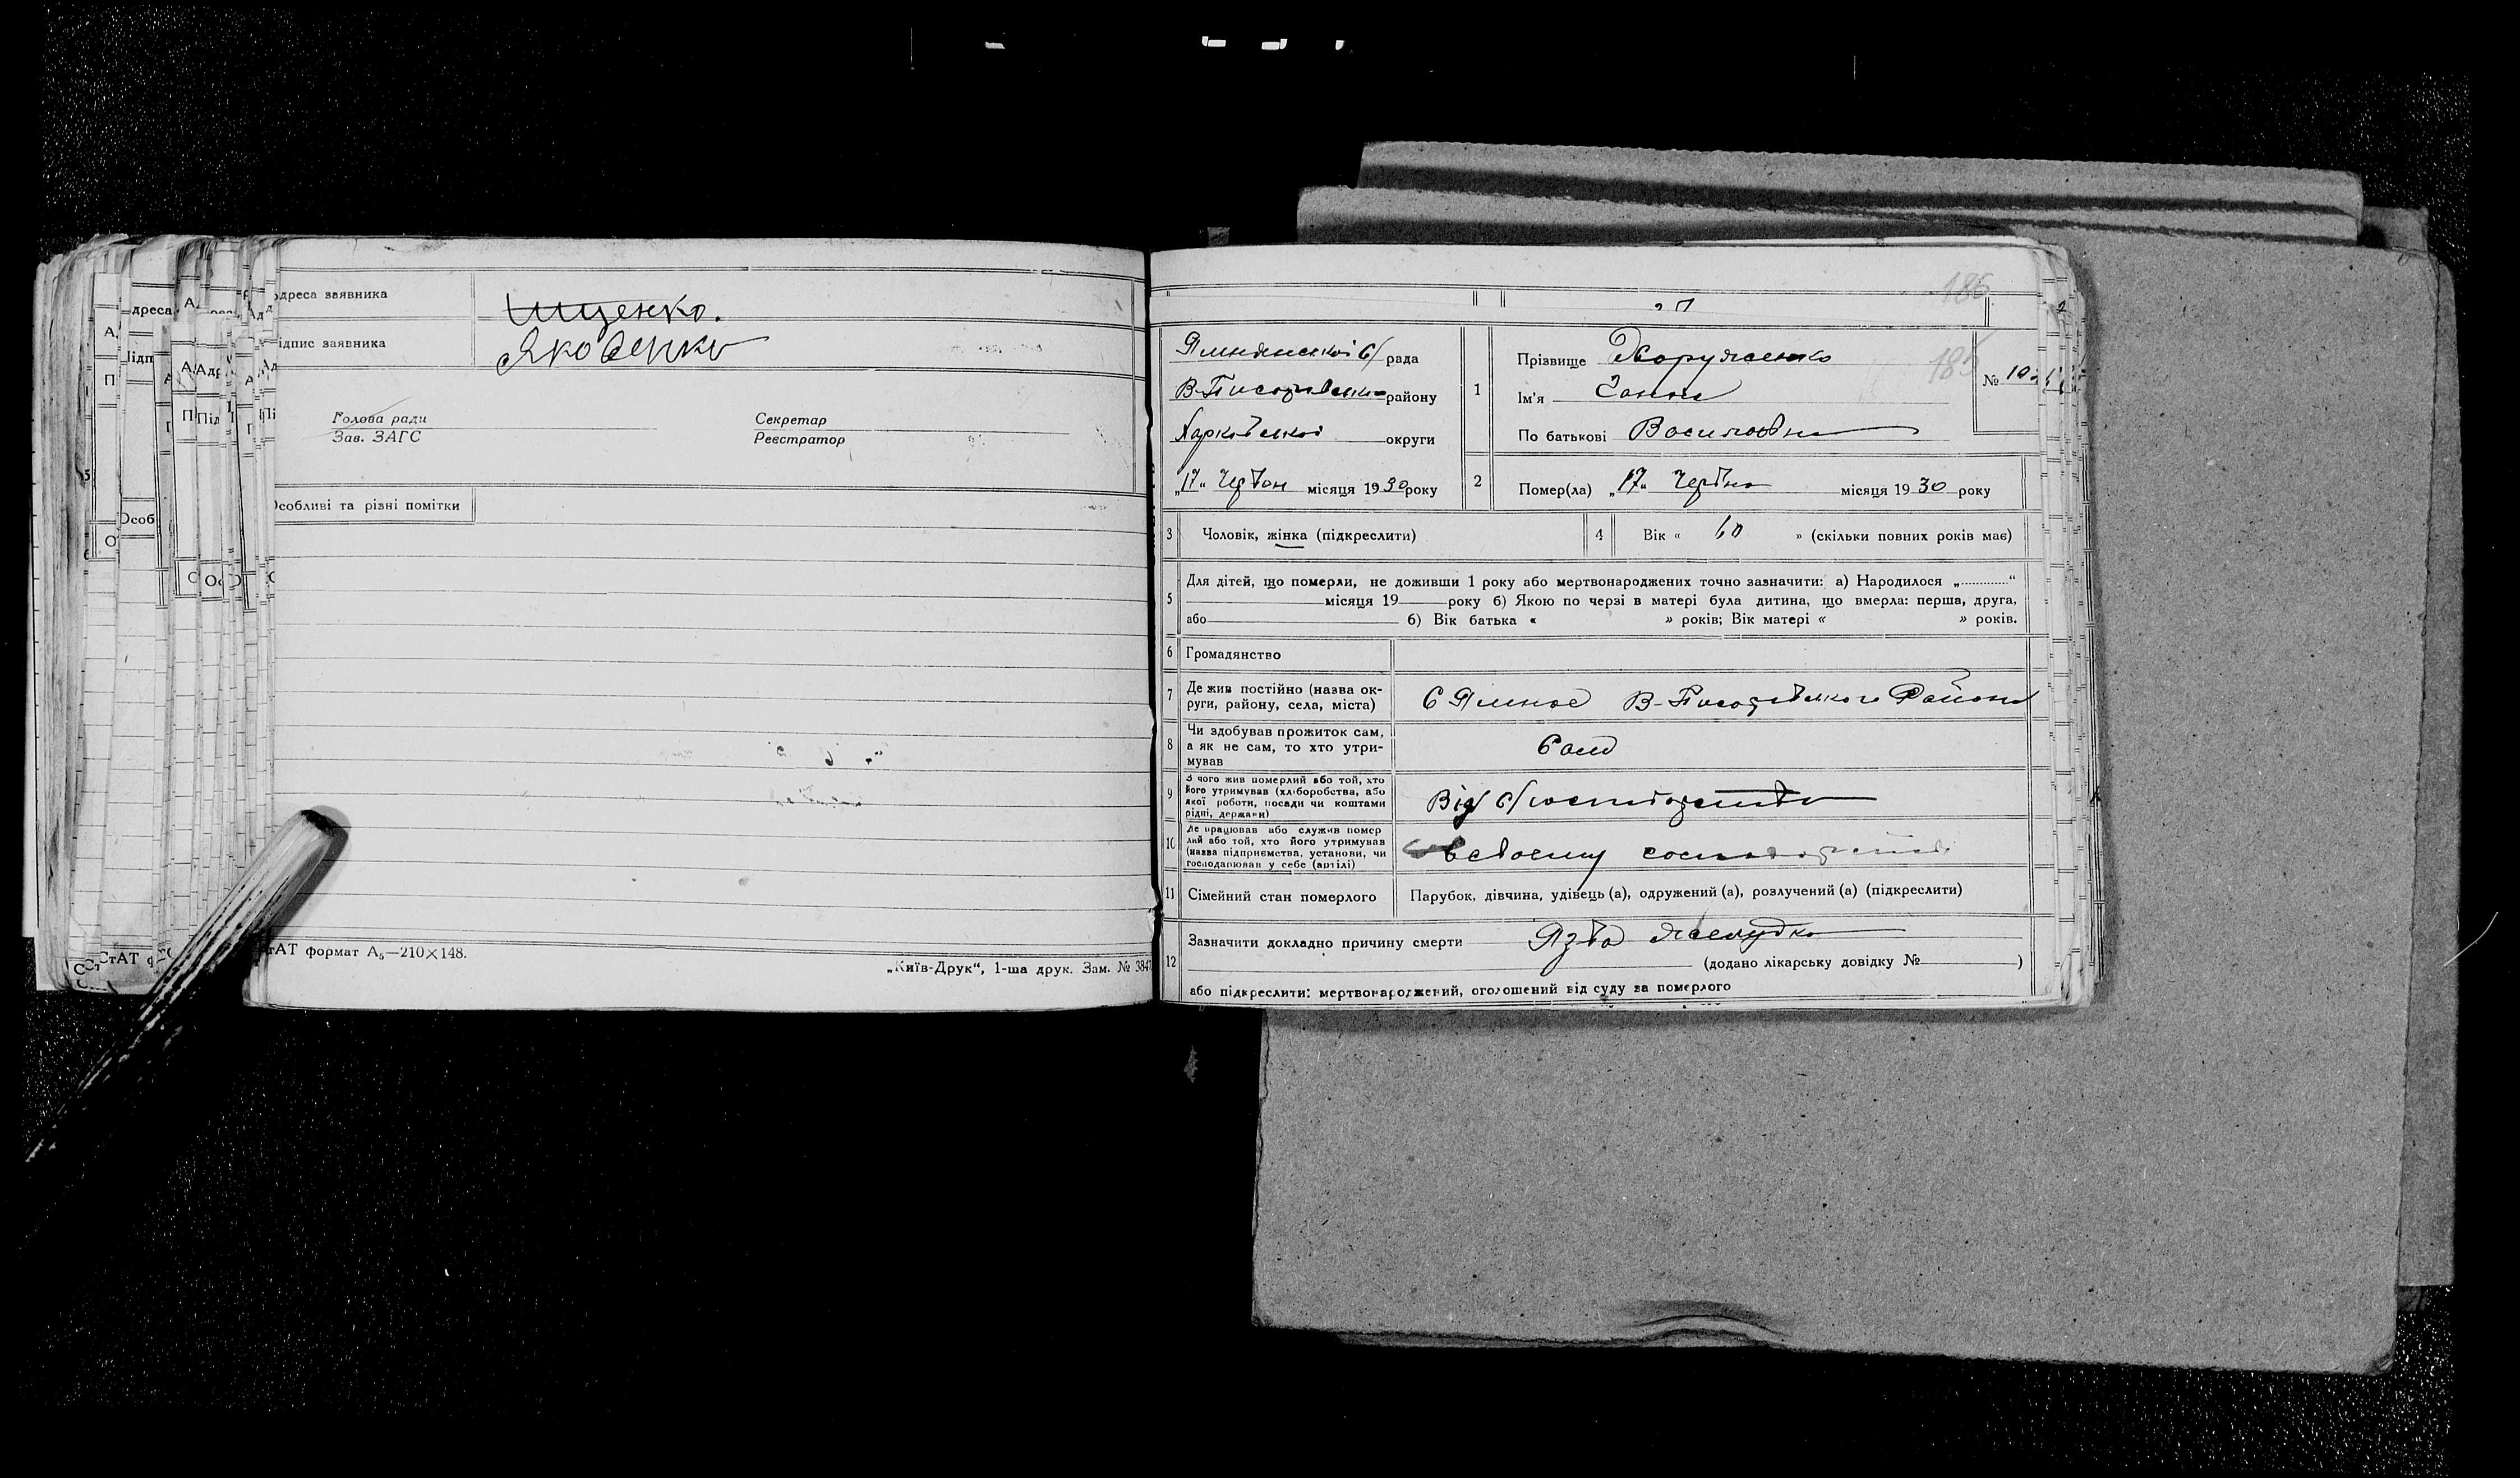 Адреса заявника
Іщенко.
Підпис заявника
Яковенко
Голова ради
Зав. ЗАГС
Секретар
Реєстратор
Особливі та різні помітки
СтАТ формат А₅—210×148.
„Київ-Друк“, 1-ша друк. Зам. № 384
186
Ямнянської с/ рада
В-Писарівсько району
Харківської округи
„17“ Червня місяця 1930 року
1
Прізвище Хоруженко
185
Ім'я Ганна
По батькові Василівна
№ 10
2
Помер(ла) „17“ Червня місяця 1930 року
3 Чоловік, жінка (підкреслити)
4 Вік « 60 » (скільки повних років має)
5 Для дітей, що померли, не доживши 1 року або мертвонароджених точно зазначити: а) Народилося „............“
місяця 19 року б) Якою по черзі в матері була дитина, що вмерла: перша, друга,
або б) Вік батька « » років; Вік матері « » років.
6 Громадянство
7 Де жив постійно (назва округи, району, села, міста) С Ямное В-Писарівського Району
8 Чи здобував прожиток сам,
а як не сам, то хто утримував
Сам
9 З чого жив померлий або той, хто
його утримував (хліборобства, або
якої роботи, посади чи коштами
рідні, держави)
Від с/господарства
10 Де працював або служив померлий або той, хто його утримував
(назва підприємства, установи, чи
господарював у себе (артілі)
в своєму господарстві
11 Сімейний стан померлого Парубок, дівчина, удівець (а), одружений (а), розлучений (а) (підкреслити)
12 Зазначити докладно причину смерти Язва желудка
(додано лікарську довідку № )
або підкреслити: мертвонароджений, оголошений від суду за померлого